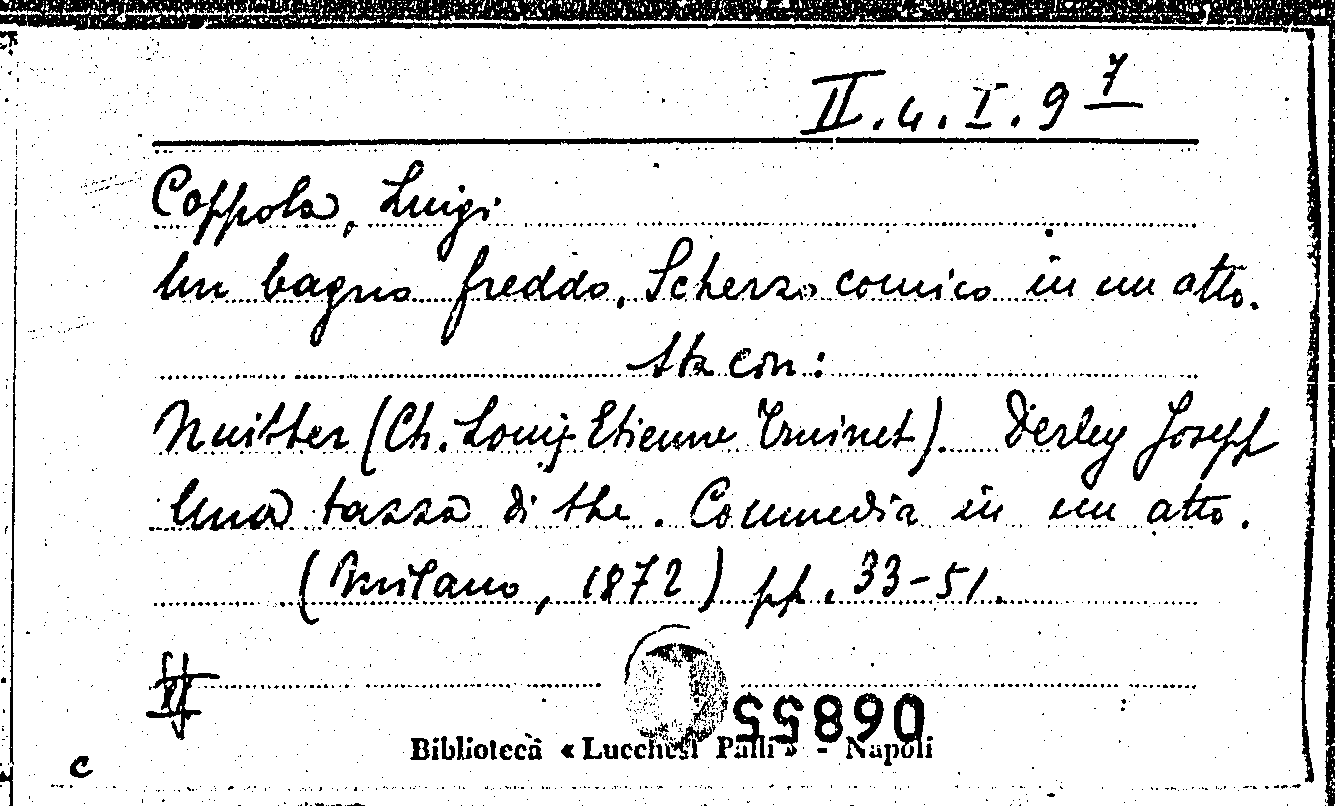 II.4.I.9 7
Coppola, Luigi
Un bagno freddo. Scherzo comico in un atto.
Sta con:
Nuitter (Ch. Louis Etienne Truinet). Derley Josepf
Una tazza di the. Commedia in un atto.
(Milano, 1872) pp. 33-51.
06855
Biblioteca « Lucchesi Palli » - Napoli
c